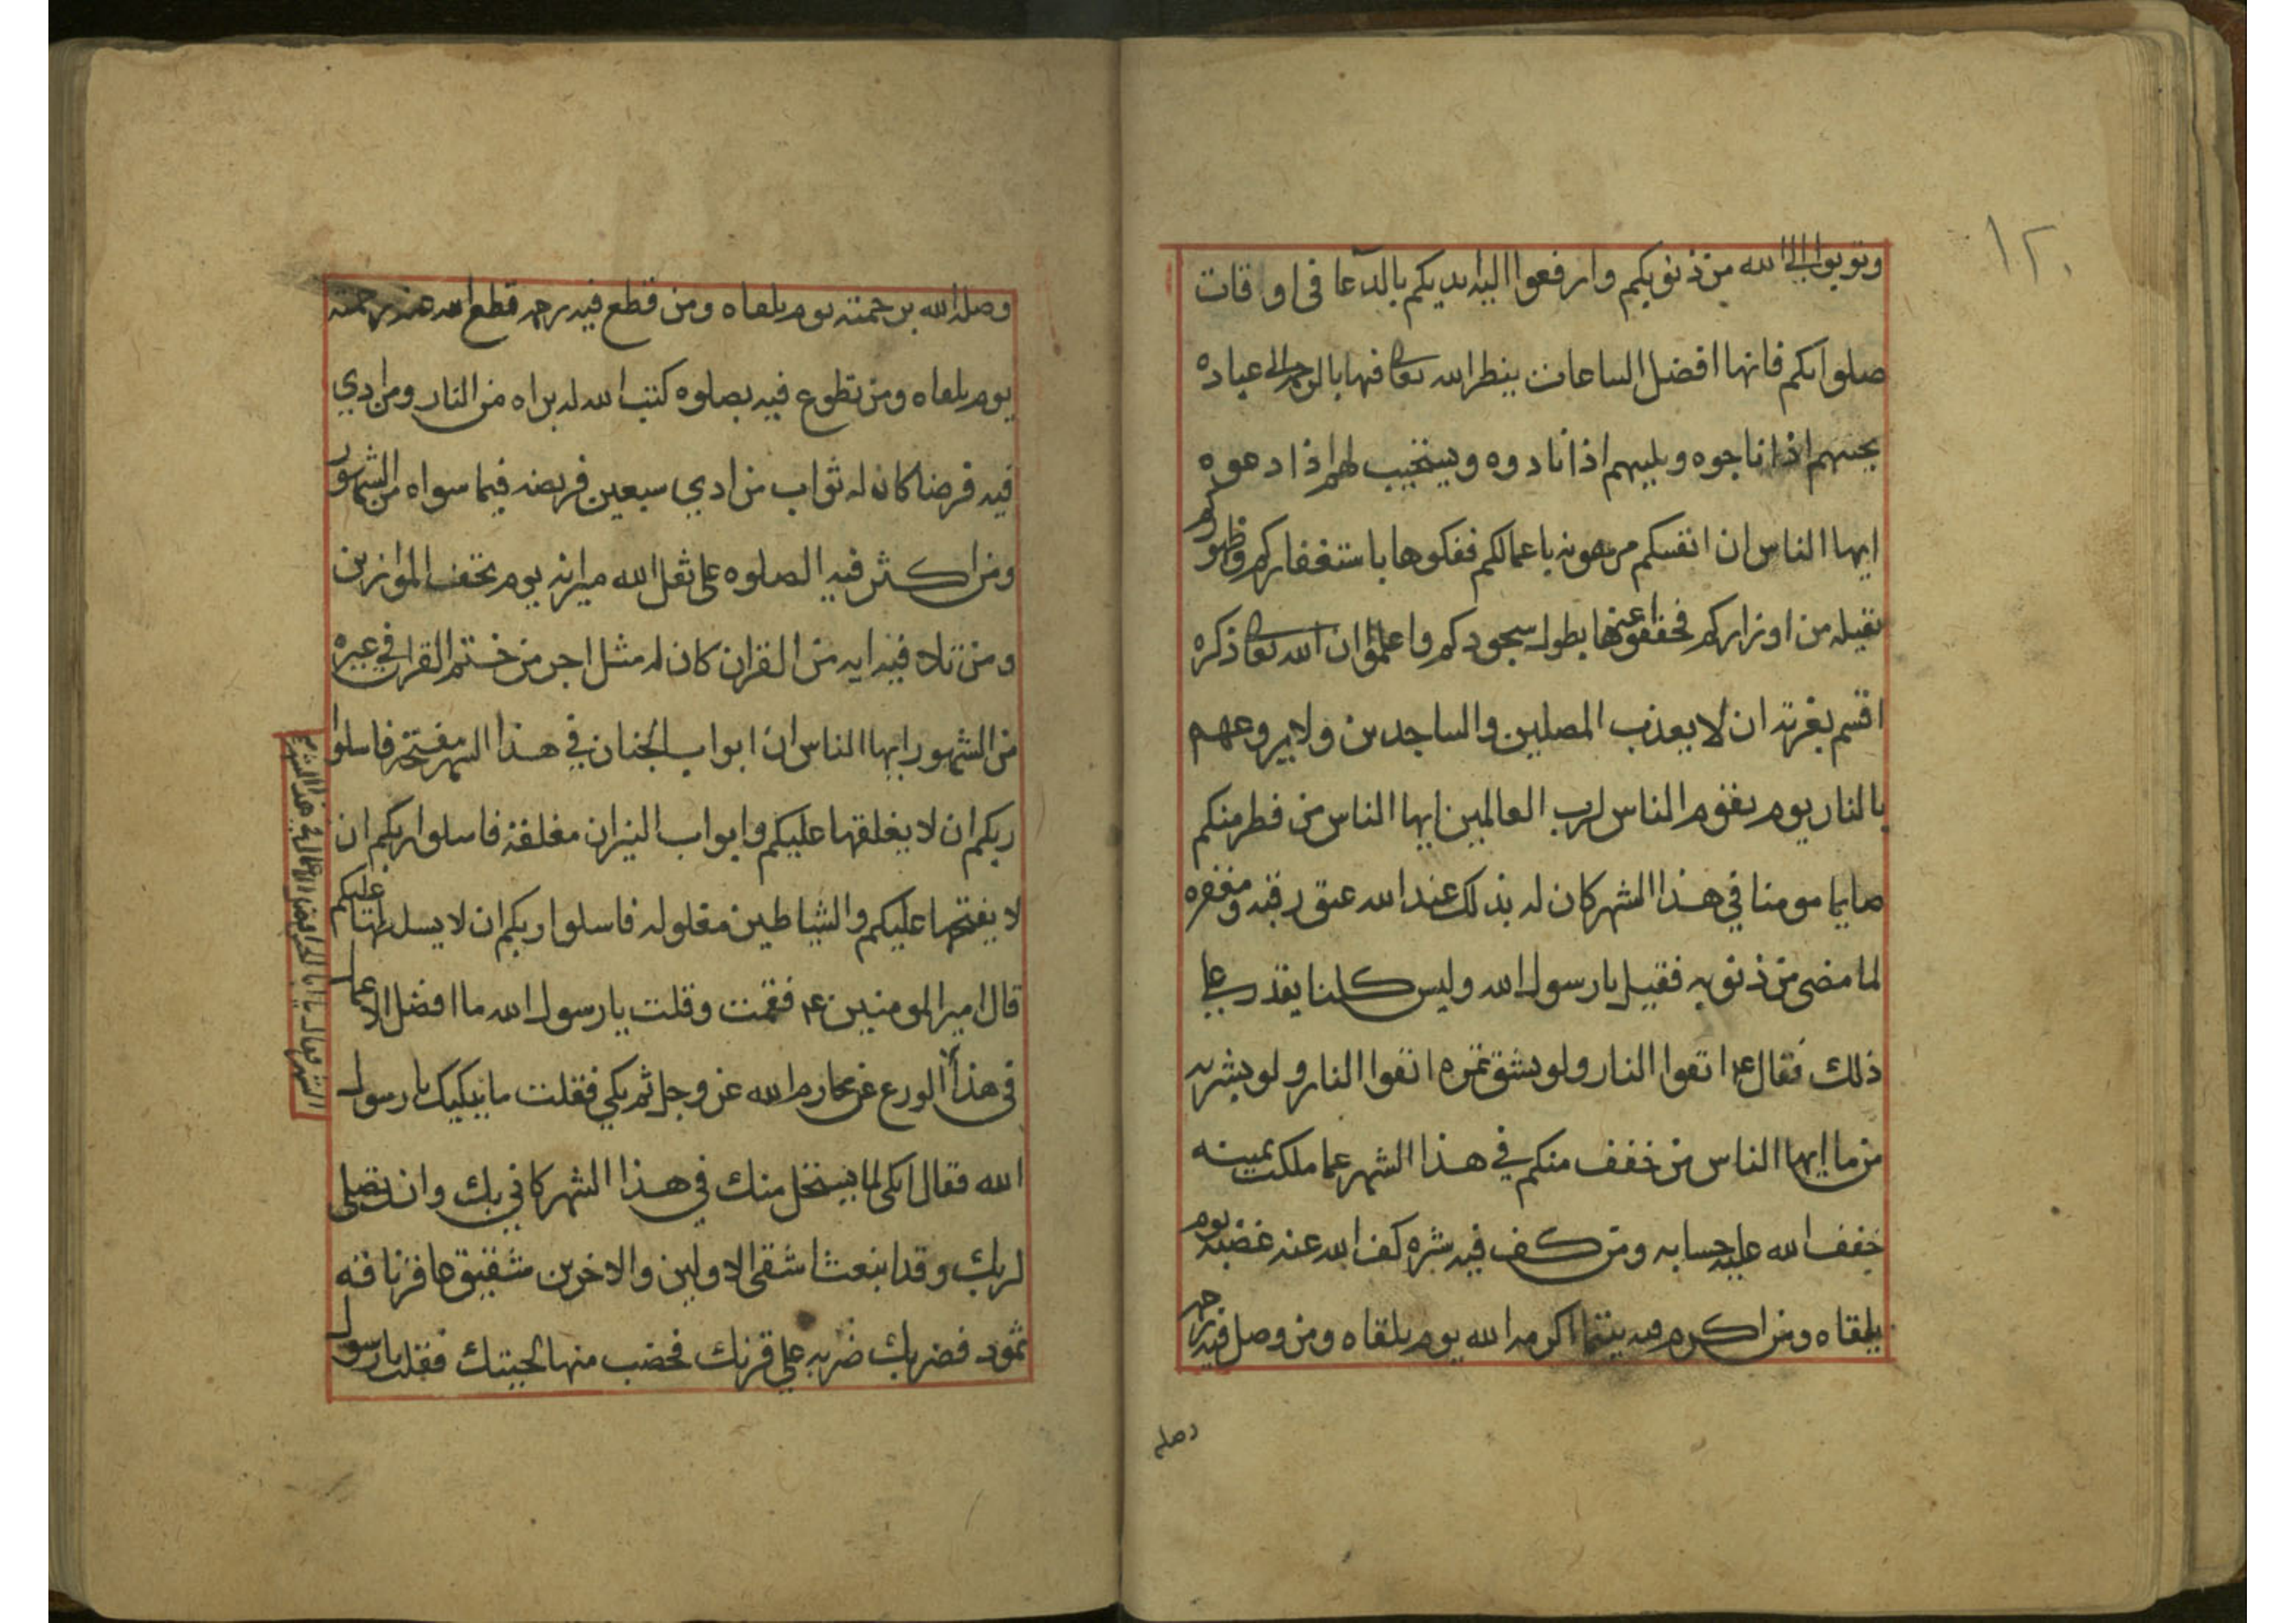 ١٢٠
وتوبوا الى الله من ذنوبكم وارفعوا اليه ايديكم بالدعا فى اوقات
صلواتكم فانها افضل الساعات ينظر الله تعالى فيها بالرحمة الى عباده
يجيبهم اذا ناجوه ويلبيهم اذا نادوه ويستجيب لهم اذا دعوه
ايها الناس ان انفسكم مرهونه باعمالكم ففكوها باستغفاركم وظهوركم
ثقيله من اوزاركم فخففوا عنها بطول سجودكم واعلموا ان الله تعالى ذكره
اقسم بعزته ان لا يعذب المصلين والساجدين ولا يروعهم
بالنار يوم يقوم الناس لرب العالمين ايها الناس من فطر منكم
صايما مومنا في هذا الشهر كان له بذلك عند الله عتق رقبه ومغفره
لما مضى من ذنوبه فقيل يا رسول الله وليس كلنا يقدر على
ذلك فقال ع اتقوا النار ولو بشق تمره اتقوا النار ولو بشربه
من ما ايها الناس من خفف منكم في هذا الشهر عما ملكت يمينه
خفف الله عليه حسابه ومن كف فيه شره كف الله عنه غضبه يوم
يلقاه ومن اكرم فيه يتيما اكرمه الله يوم يلقاه ومن وصل فيه رحمه
وصله
وصله الله برحمته يوم يلقاه ومن قطع فيه رحمه قطع الله عنه رحمته
يوم يلقاه ومن تطوع فيه بصلوه كتب الله له براه من النار ومن ادي
فيه فرضا كان له ثواب من ادي سبعين فريضه فيما سواه من الشهور
ومن اكثر فيه الصلوه على ثقل الله ميزانه يوم تخف الموازين
ومن تلا فيه ايه من القران كان له مثل اجر من ختم القران في غيره
من الشهور ايها الناس ان ابواب الجنان في هذا الشهر مفتحه فاسلوا
ربكم ان لا يغلقها عليكم وابواب النيران مغلقة فاسلوا ربكم ان
لا يفتحها عليكم والشياطين مغلوله فاسلوا ربكم ان لا يسلطها عليكم
قال امير المومنين ع فقمت وقلت يا رسول الله ما افضل الاعمال
فى هذا الورع عن محارم الله عز وجل ثم بكي فقلت ما يبكيك يا رسول
الله فقال ابكى لما يستحل منك في هذا الشهر كاني بك وانت تصلى
لربك وقد انبعث اشقى الاولين والاخرين شقيق عاقر ناقه
ثمود فضربك ضربه على قرنك فخضب منها لحيتك فقلت يا رسول
الشهر فقال يا ابا الحسن افضل الاعمال في هذا الشهر